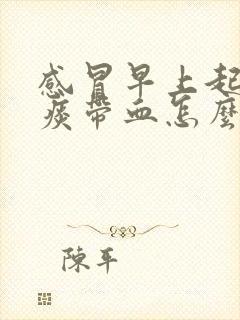 感冒早上起
痰帶血怎麼
陳平